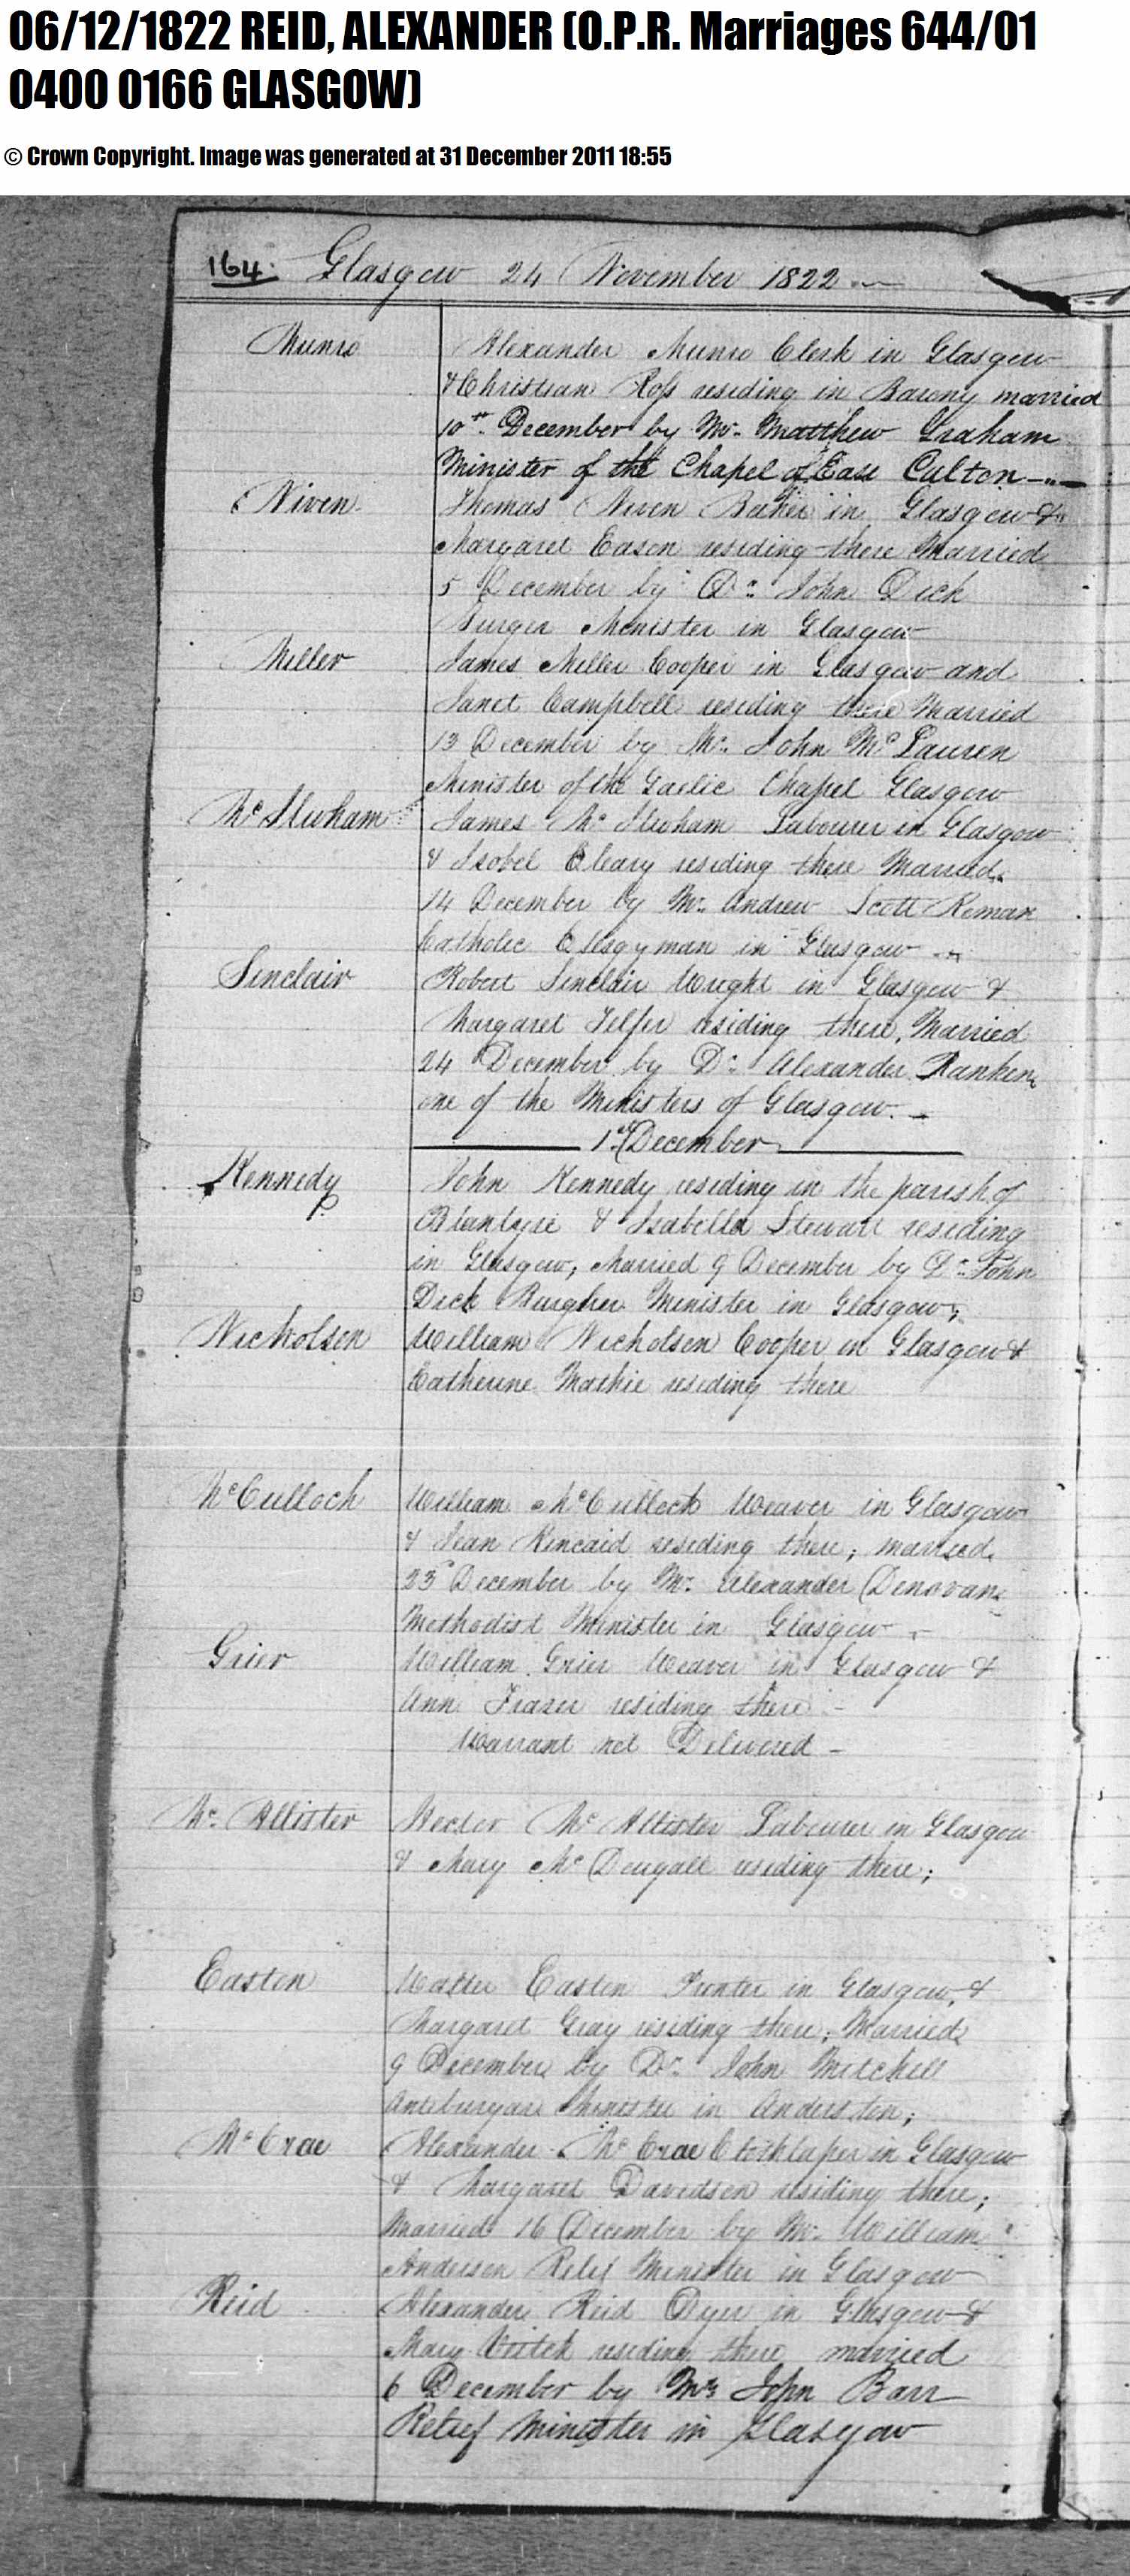 06/12/1822 REID, ALEXANDER (O.P.R. Marriages 644/01
0400 0166 GLASGOW)
© Crown Copyright. Image was generated at 31 December 2011 18:55
164. Glasgow 24 November 1822
Munro Alexander Munro Clerk in Glasgow
& Christian Ross residing in Barony married
10th December by Mr. Matthew Graham
Minister of the Chapel of Ease Calton
Niven Thomas Niven Baker in Glasgow &
Margaret Eason residing there Married
5 December by Dr. John Dick
Minister in Glasgow
Miller James Miller Cooper in Glasgow and
Janet Campbell residing there Married
13 December by Mr. John McLauren
Minister of the Gaelic Chapel Glasgow
James Mc Labourer in Glasgow
& Isobel Cleary residing there Married
14 December by Mr. Andrew Scott Roman
Catholic Clergyman in Glasgow
Sinclair Robert Sinclair Wright in Glasgow &
Margaret Telfer residing there, Married
24 December by Dr. Alexander Ranken
one of the Ministers of Glasgow.
1st December
Kennedy John Kennedy residing in the parish of
Blantyre & Isabella Stewart residing
in Glasgow, Married 9 December by Dr. John
Dick Burgher Minister in Glasgow;
Nicholson William Nicholson Cooper in Glasgow &
Catherine Mathie residing there
McCulloch William McCulloch Weaver in Glasgow
& Jean Kincaid residing there; married
23d December by Mr. Alexander Donovan
Methodist Minister in Glasgow
Grier William Grier Weaver in Glasgow &
Ann Frazer residing there
Warrant not Delivered
Mc. Allister Hector Mc Allister Labourer in Glasgow
& Mary Mc Dougall residing there;
Easton Walter Easton Printer in Glasgow, &
Margaret Gray residing there; Married
9 December by Dr. John Mitchell
Minister in Anderston;
McCrae Alexander McCrae in Glasgow
& Margaret Davidson residing there;
Married 16 December by Mr. William
Anderson Relief Minister in Glasgow
Reid Alexander Reid Dyer in Glasgow &
Mary Veitch residing there married
6 December by Mr John Barr
Relief Minister in Glasgow